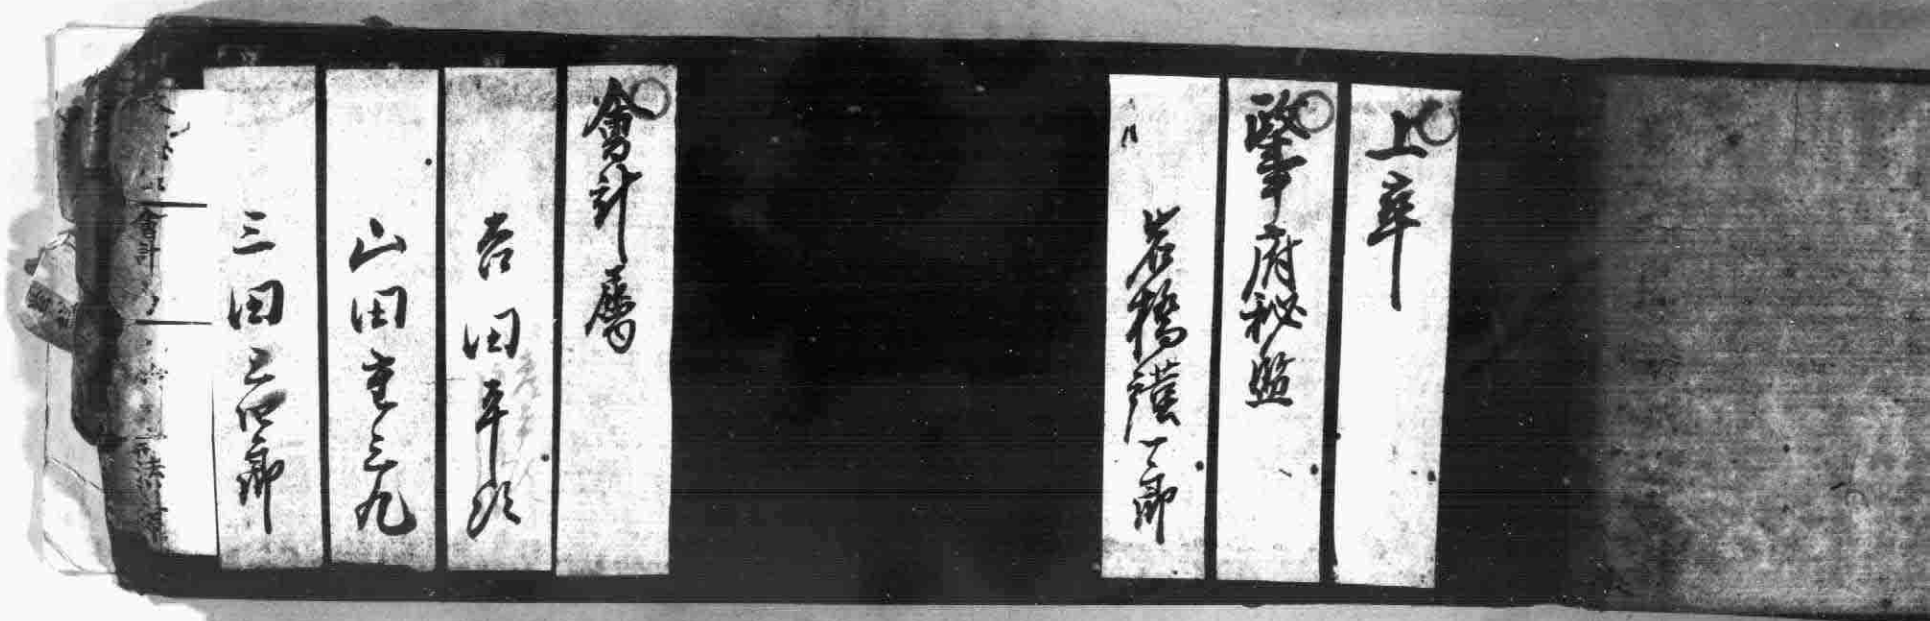 上卒
政事府秘監
岩橋謹一郎
會計属
吉田平次
山田重三九
三田三四郎
會計
法